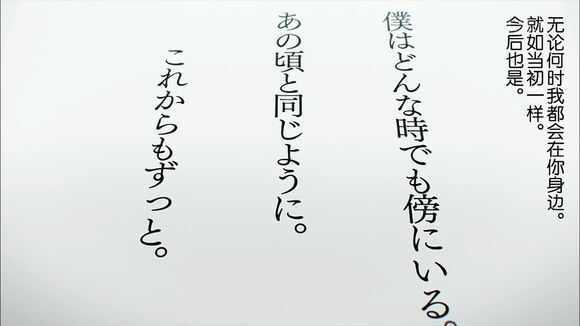 无论何时我都会在你身边。
就如当初一样。
今后也是。
僕はどんな時でも傍にいる。
あの頃と同じように。
これからもずっと。